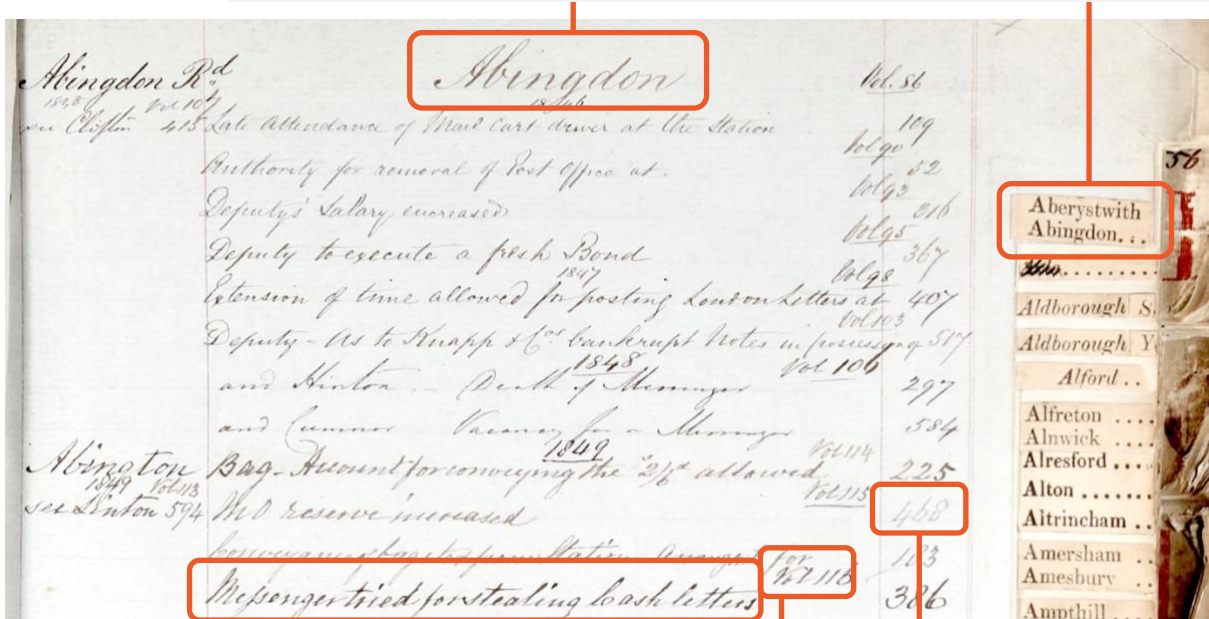 Abingdon Rd
1848 Vol 104
see Clifton 415
Abingdon
1846
Vol. 86
Late Attendance of Mail Cart driver at the Station 109
Vol 90
Authority for removal of Post Office at. 52
Vol 93
Deputy's Salary encreased 316
Vol 95
Deputy to execute a fresh Bond 367
1847 Vol 98
Extension of time allowed for posting London Letters at 407
Vol 103
Deputy - As to Knapp & Cos. bankrupt Notes in possession of 517
1848 Vol 106
and Hinton - Death of Messenger 297
and Cumnor Vacancy for a Messenger 584
1849 Vol 114
Abington
1849 Vol 113
see Linton 594
Bag - Account for conveying the 2/6d allowed 225
Vol 115
MO reserve increased 468
Conveyance of bags to & from Station for 103
Vol 116
Messenger tried for stealing Cash letters 386
56
Aberystwith
Abingdon...
Aldborough S.
Aldborough Y
Alford ..
Alfreton ....
Alnwick ....
Alresford ....
Alton .......
Altrincham ..
Amersham ..
Amesbury ..
Ampthill ....